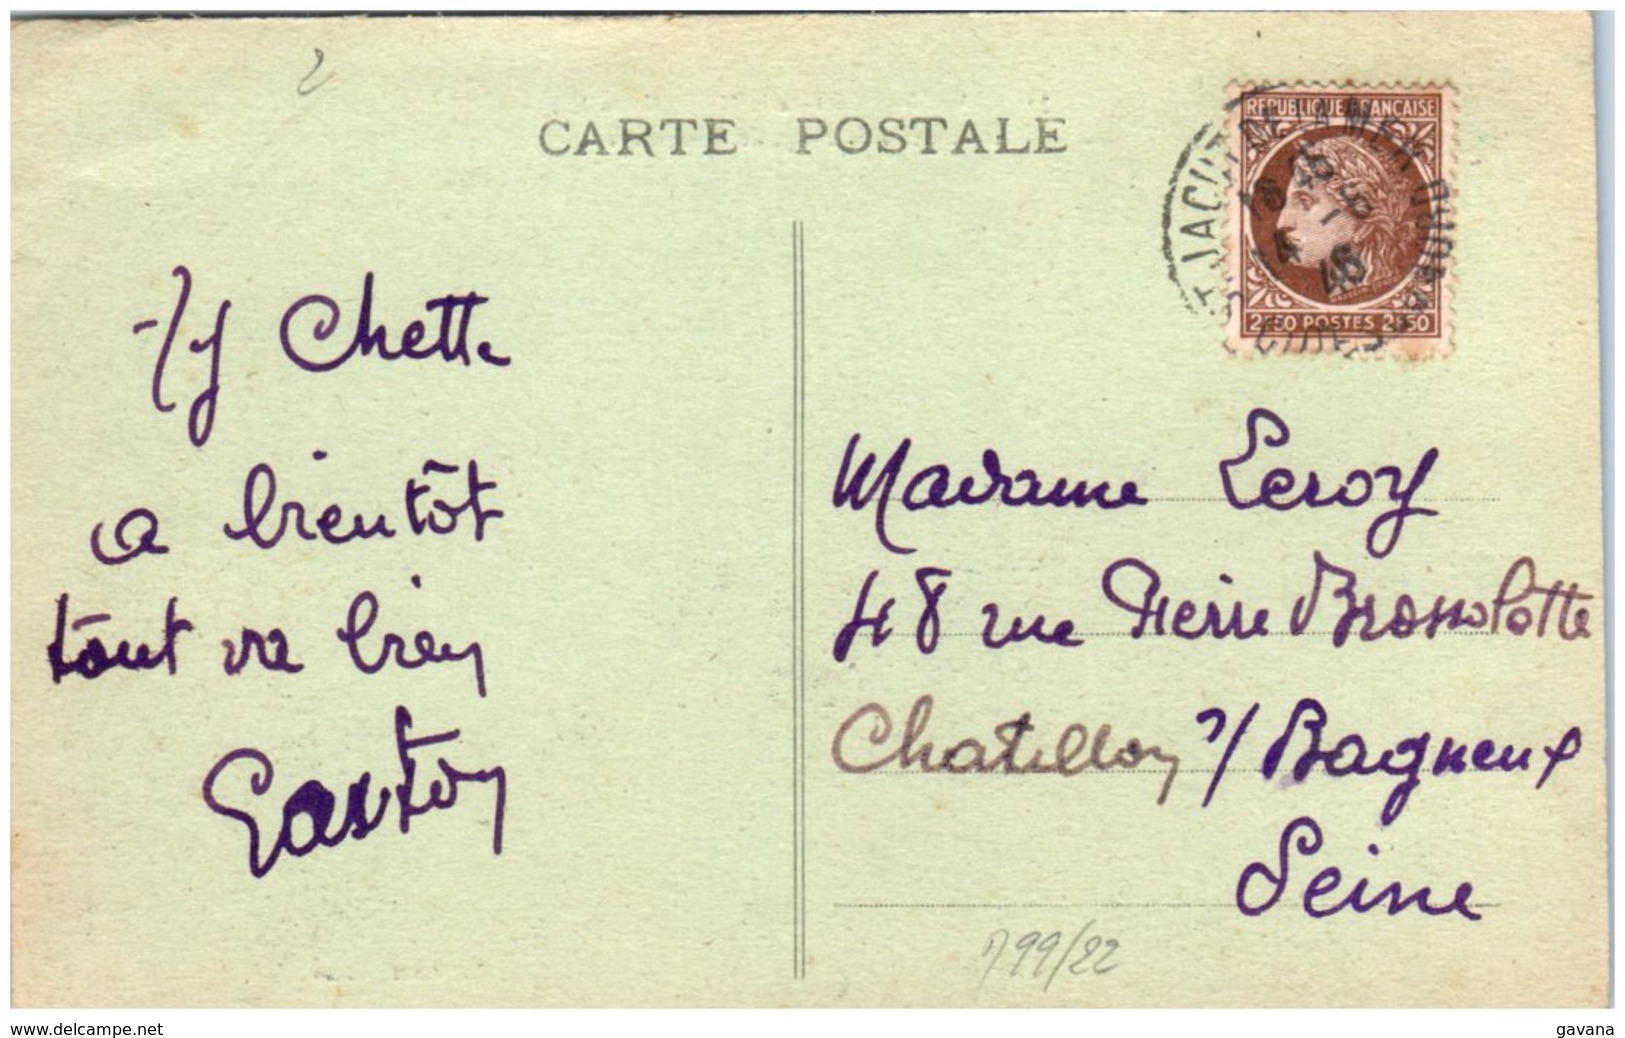 2
CARTE POSTALE
REPUBLIQUE FRANCAISE
2F50 POSTES 2F50
ST JACUT DE LA MER
18 45
4
46
Chette
a bientôt
tout va bien
Gaston
Madame Leroy
48 rue Pierre Brossolotte
Chatillon s/ Bagneux
Seine
799/22
www.delcampe.net
gavana